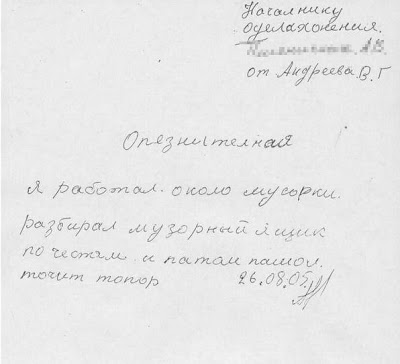 Началнику
оделахонения.
А.В.
от Андреева В. Г
Опязнителная
я работал около мусорки.
разбирал музорный ящик
по честям и патом пашол.
точит топор 26.08.05.